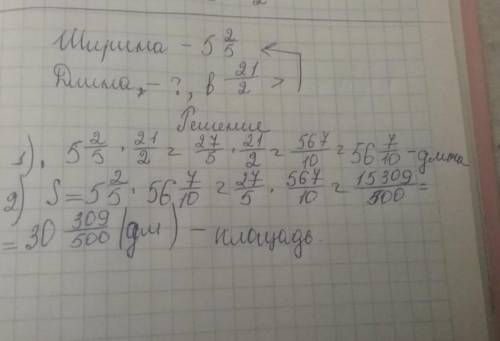 Ширина - 5 2/5
Длина - ?, в 21/2 >
Решение
1). 5 2/5 · 21/2 = 27/5 · 21/2 = 567/10 = 56 7/10 - длина
2) S = 5 2/5 · 56 7/10 = 27/5 · 567/10 = 15309/500 =
= 30 309/500 (дм) - площадь.